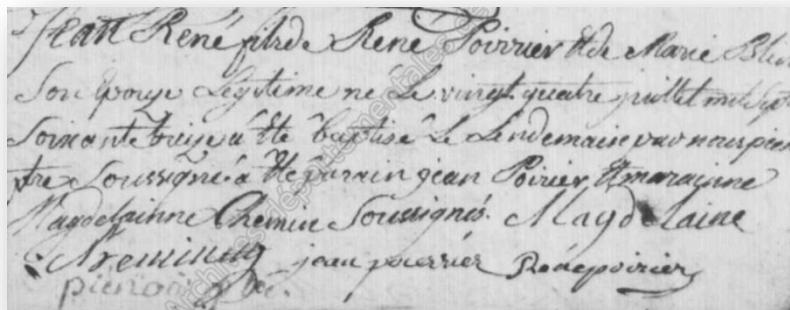 Jean René fils de René Poirrier et de Marie
Son Epouze Legitime né Le vingt quatre juillet mil sept
Soixante treize a Eté baptisé Le Lendemain par nous
tre Soussigné a Eté parain jean Poirier, et marainne
Magdelainne Soussignés. Magdelaine
jean poierrier René poirier